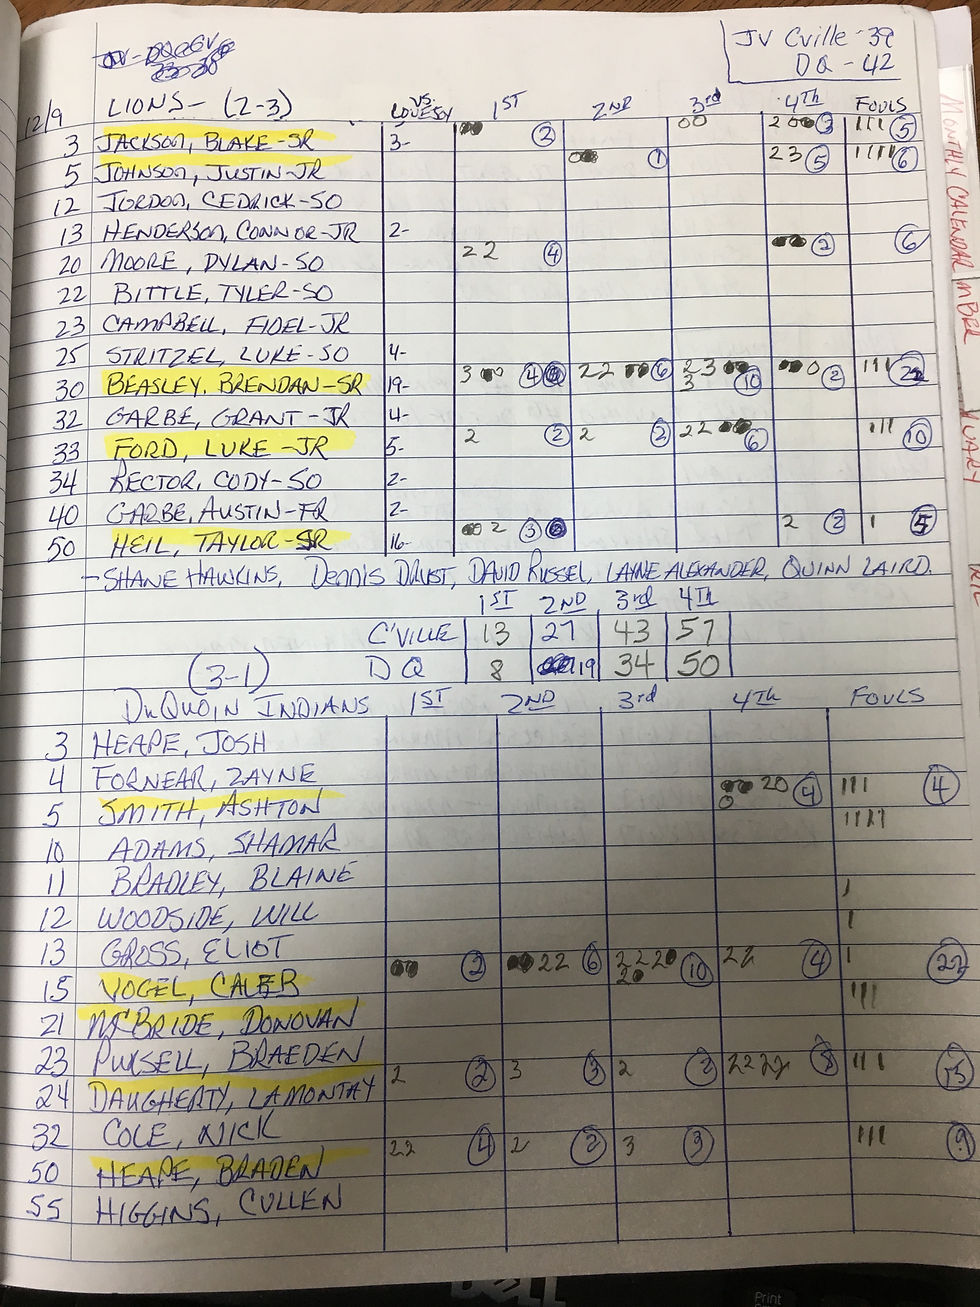 JV Cville - 39
DQ - 42
12/9 LIONS - (2-3) VS. LOVEJOY 1ST 2ND 3rd 4TH FOULS
3 JACKSON, BLAKE-SR 3- 2 00 2 3 III 5
5 JOHNSON, JUSTIN-JR 1 2 3 5 IIII 6
12 JORDON, CEDRICK-SO
13 HENDERSON, CONNOR-JR 2-
20 MOORE, DYLAN-SO 2 2 4 2 6
22 BITTLE, TYLER-SO
23 CAMPBELL, FIDEL-JR
25 STRITZEL, LUKE-SO 4-
30 BEASLEY, BRENDAN-SR 19- 3 0 4 2 2 6 2 3 3 10 0 2 III 22
32 GARBE, GRANT-JR 4-
33 FORD, LUKE-JR 5- 2 2 2 2 2 2 6 III 10
34 RECTOR, CODY-SO 2-
40 GARBE, AUSTIN-FR 2-
50 HEIL, TAYLOR-SR 16- 2 3 2 2 I 5
- SHANE HAWKINS, DENNIS DRUST, DAVID RUSSEL, LAYNE ALEXANDER, QUINN LAIRD.
1ST 2ND 3rd 4TH
C'VILLE 13 27 43 57
(3-1) DQ 8 19 34 50
DUQUOIN INDIANS 1ST 2ND 3rd 4TH FOULS
3 HEAPE, JOSH
4 FORNEAR, ZAYNE
5 SMITH, ASHTON 2 0 0 4 III 4
10 ADAMS, SHAMAR IIII
11 BRADLEY, BLAINE
12 WOODSIDE, WILL I
13 GROSS, ELIOT I
15 VOGEL, CALEB 2 2 2 6 2 2 2 0 2 10 2 2 4 I 22
21 McBRIDE, DONOVAN III
23 PURSELL, BRAEDEN
24 DAUGHERTY, LAMONTAY 2 2 3 3 2 2 2 2 2 2 8 III 15
32 COLE, NICK
50 HEAPE, BRADEN 2 2 4 2 2 3 3 III 9
55 HIGGINS, CULLEN